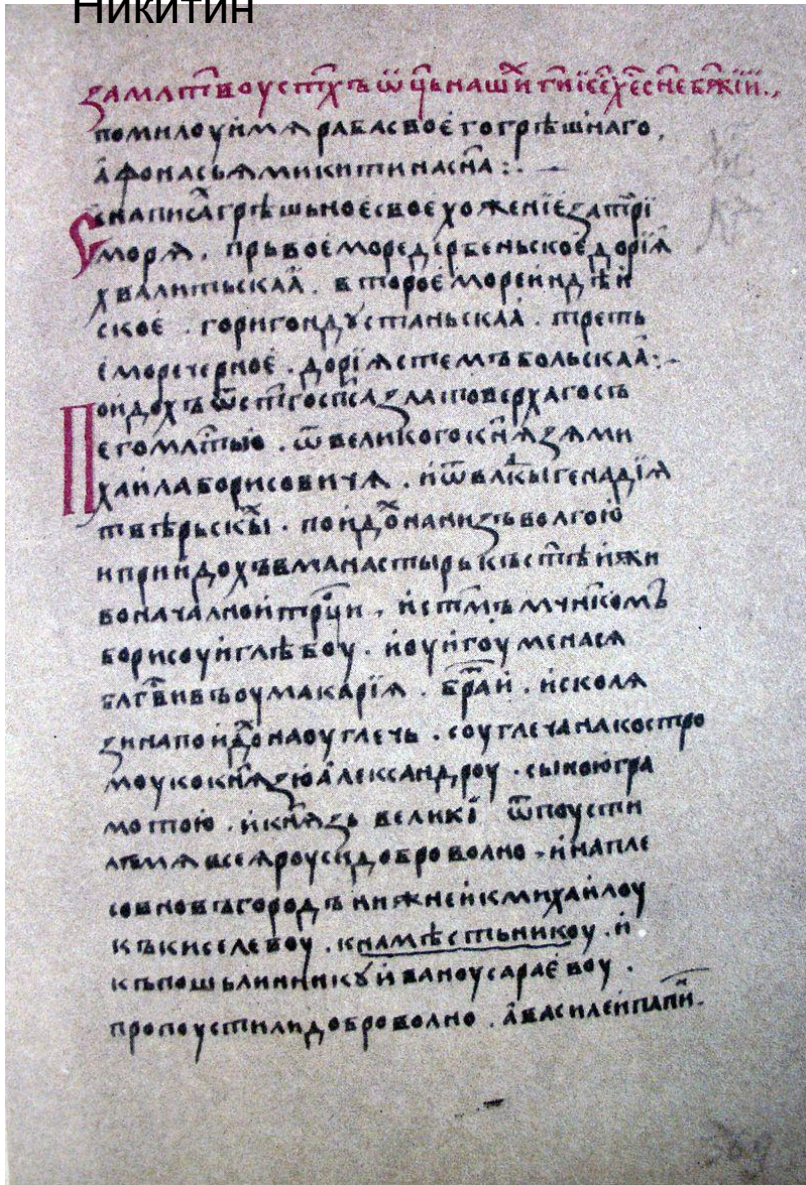 Никитин
за млт҃воу ст҃хъ ѿц҃ь нашихⷯ ги҃ іс҃е хе҃ сн҃е бж҃іи .,
помилоуи мѧ раба своего грѣшнаго ,
аѳонасьѧ микитина сн҃а :. —
Се написаⷯ грѣшьное свое хоженіе за три
морѧ . прьвое море дербеньское дорїа
хвалитьскаа . второе море индѣи
ское . гори гондустаньскаа . треть
е море черное . дорїа стемъбольскаа :. –
Поидохъ ѿ ст҃го сп҃са златоверхаго съ
его млт҃ью . ѿ великого кнѧзѧ ми
хаила борисовичѧ . и ѿ влк҃ы генадїѧ
твѣрьскыⷯ . поидоⷯ на низъ волгою
и приидохъ в манастырь къ ст҃ѣи жи
воначалнои трⷪци . и ст҃мъ мчн҃комъ
борисоу и глѣбоу . и оу игоумена сѧ
блг҃вивъ оу макарїѧ . брⷮаи . и с колѧ
зина поидоⷯ на оуглечь . с оуглеча на костро
моу ко кнѧзю александроу . с ыною гра
мотою . и кн҃ѧзь великї ѿпоусти
лъ мѧ всеѧ роуси доброволно . и на пле
со в новъгородъ нижнеи к михаилоу
къ киселевоу . к намѣстьникоу . и
къ пошьлинникꙋ иваноу сараевоу .
пропоустили доброволно . а василеи папиⷩ .